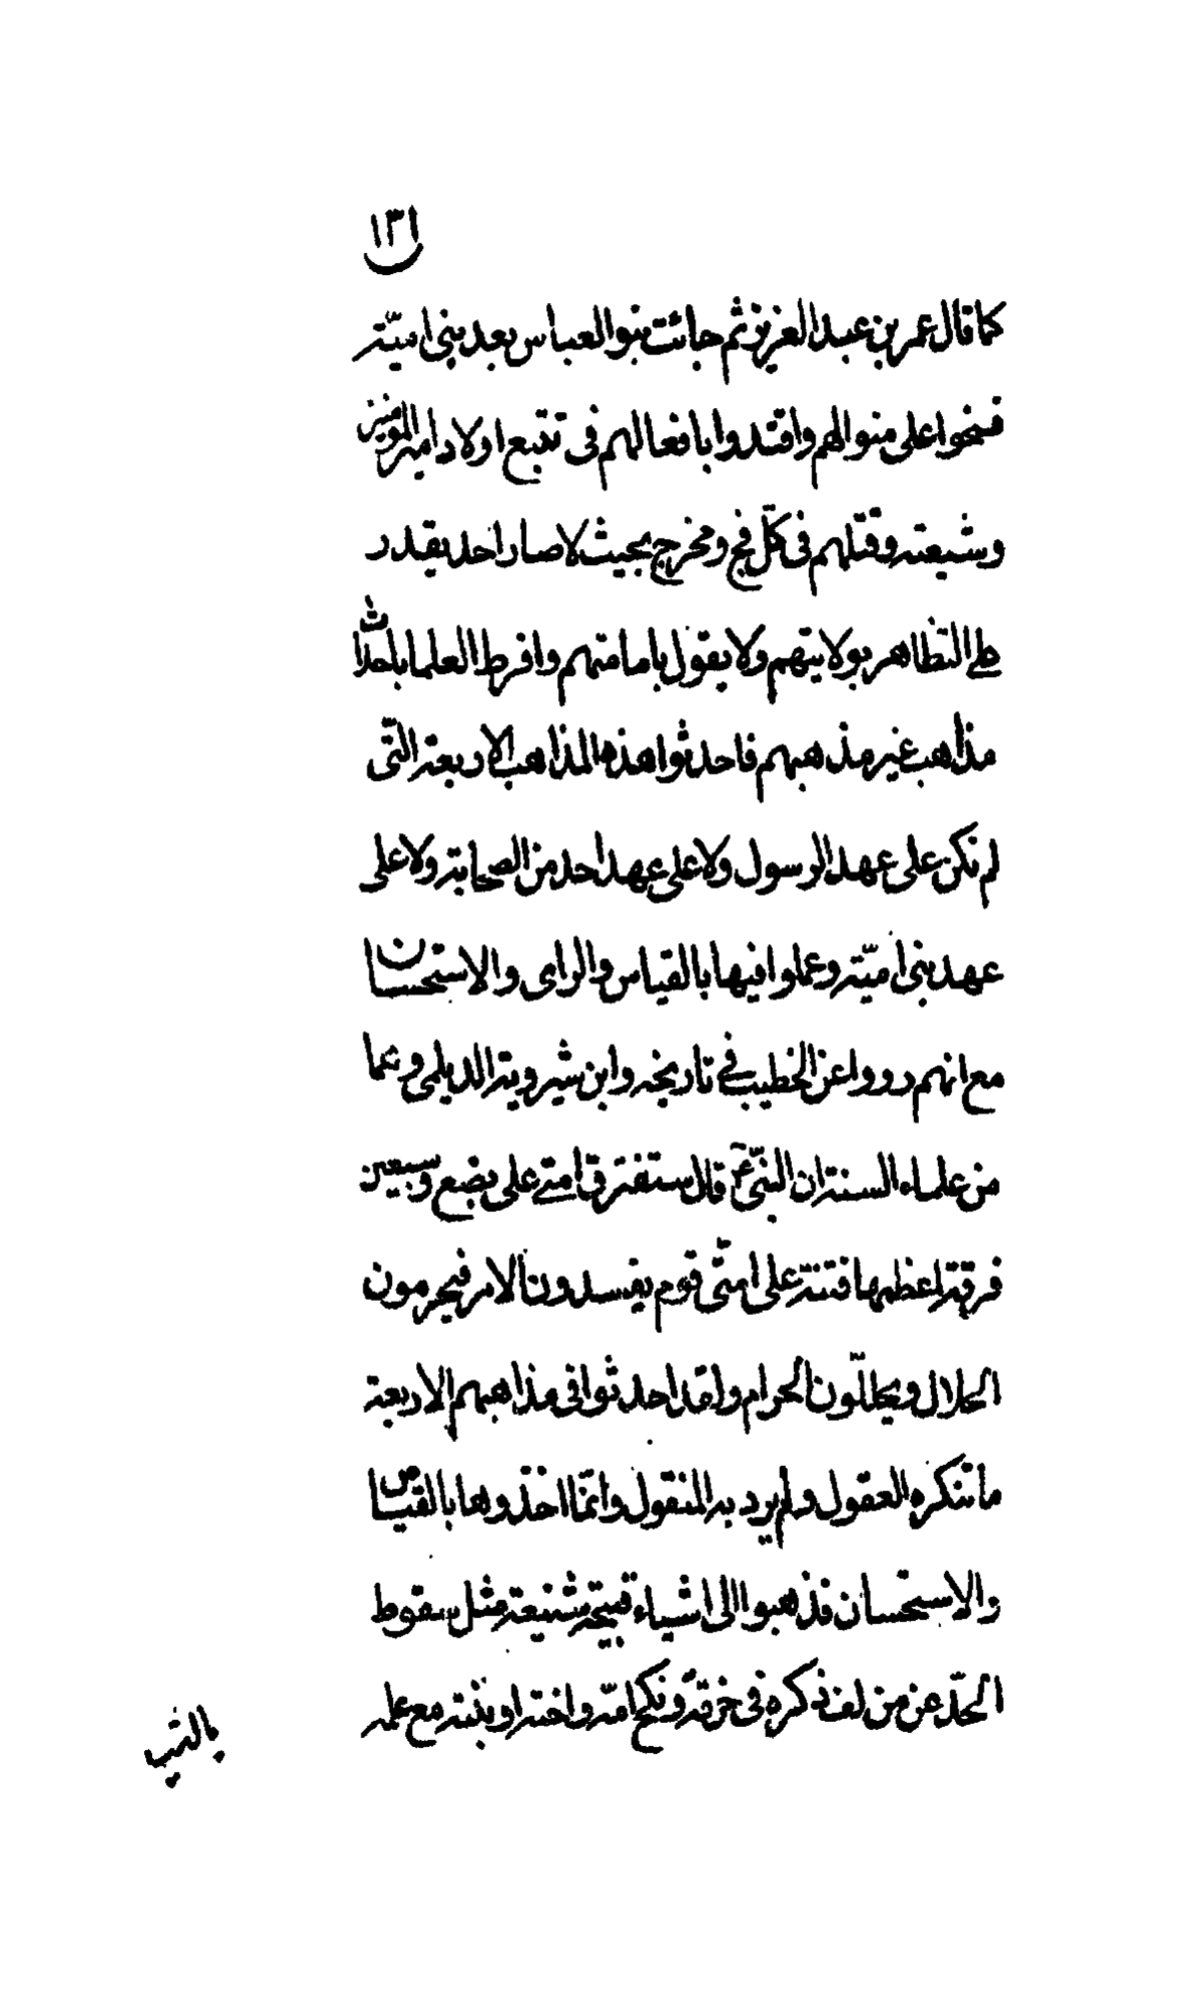 ١٣١
كما قال عمر بن عبد العزيز ثم جائت بنو العباس بعد بنى اميّة
فنحوا على منوالهم واقتدوا بافعالهم فى تتبع اولاد امير المومنين
وشيعته وقتلهم فى كلّ فج ومخرج بحيث لا صار احد يقدر
على التظاهر بولايتهم ولا يقول بامامتهم وافرط العلما باحداث
مذاهب غير مذهبهم فاحدثوا هذه المذاهب الاربعة التّى
لم تكن على عهد الرسول ولا على عهد احد من الصحابة ولا على
عهد بنى اميّة وعملوا فيها بالقياس والراى والاستحسان
مع انهم رووا عن الخطيب فى تاريخه وابن شيرويه الديلمى وعما
من علماء السنة ان النبّى ع قال ستفترق امتى على بضع وسبعين
فرقة اعظمها فتنة على امتّى قوم يفسدون الامر فيحرمون
الحلال ويحللّون الحرام ولقد احدثوا فى مذاهبهم الاربعة
ما تنكره العقول ولم يرد به المنقول وانمّا اخذوها بالقياس
والاستحسان فذهبوا الى اشياء قبيحة شنيعة مثل سقوط
الحدّ عن من لف ذكره فى خرقة ونكح امّه واخته او بنته مع علمه